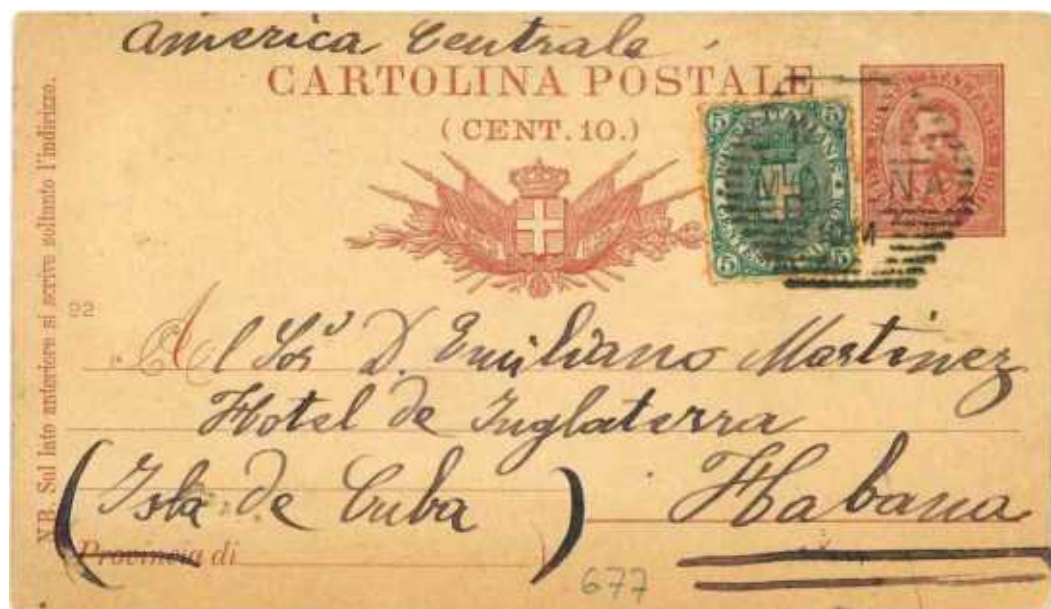 America Centrale
CARTOLINA POSTALE
(CENT. 10.)
N.B. Sul lato anteriore si scrive soltanto l'indirizzo.
5 5
5 5
22
Al Sor D. Emiliano Martinez
Hotel de Inglaterra
(Isla de Cuba) Habana
Provincia di
677